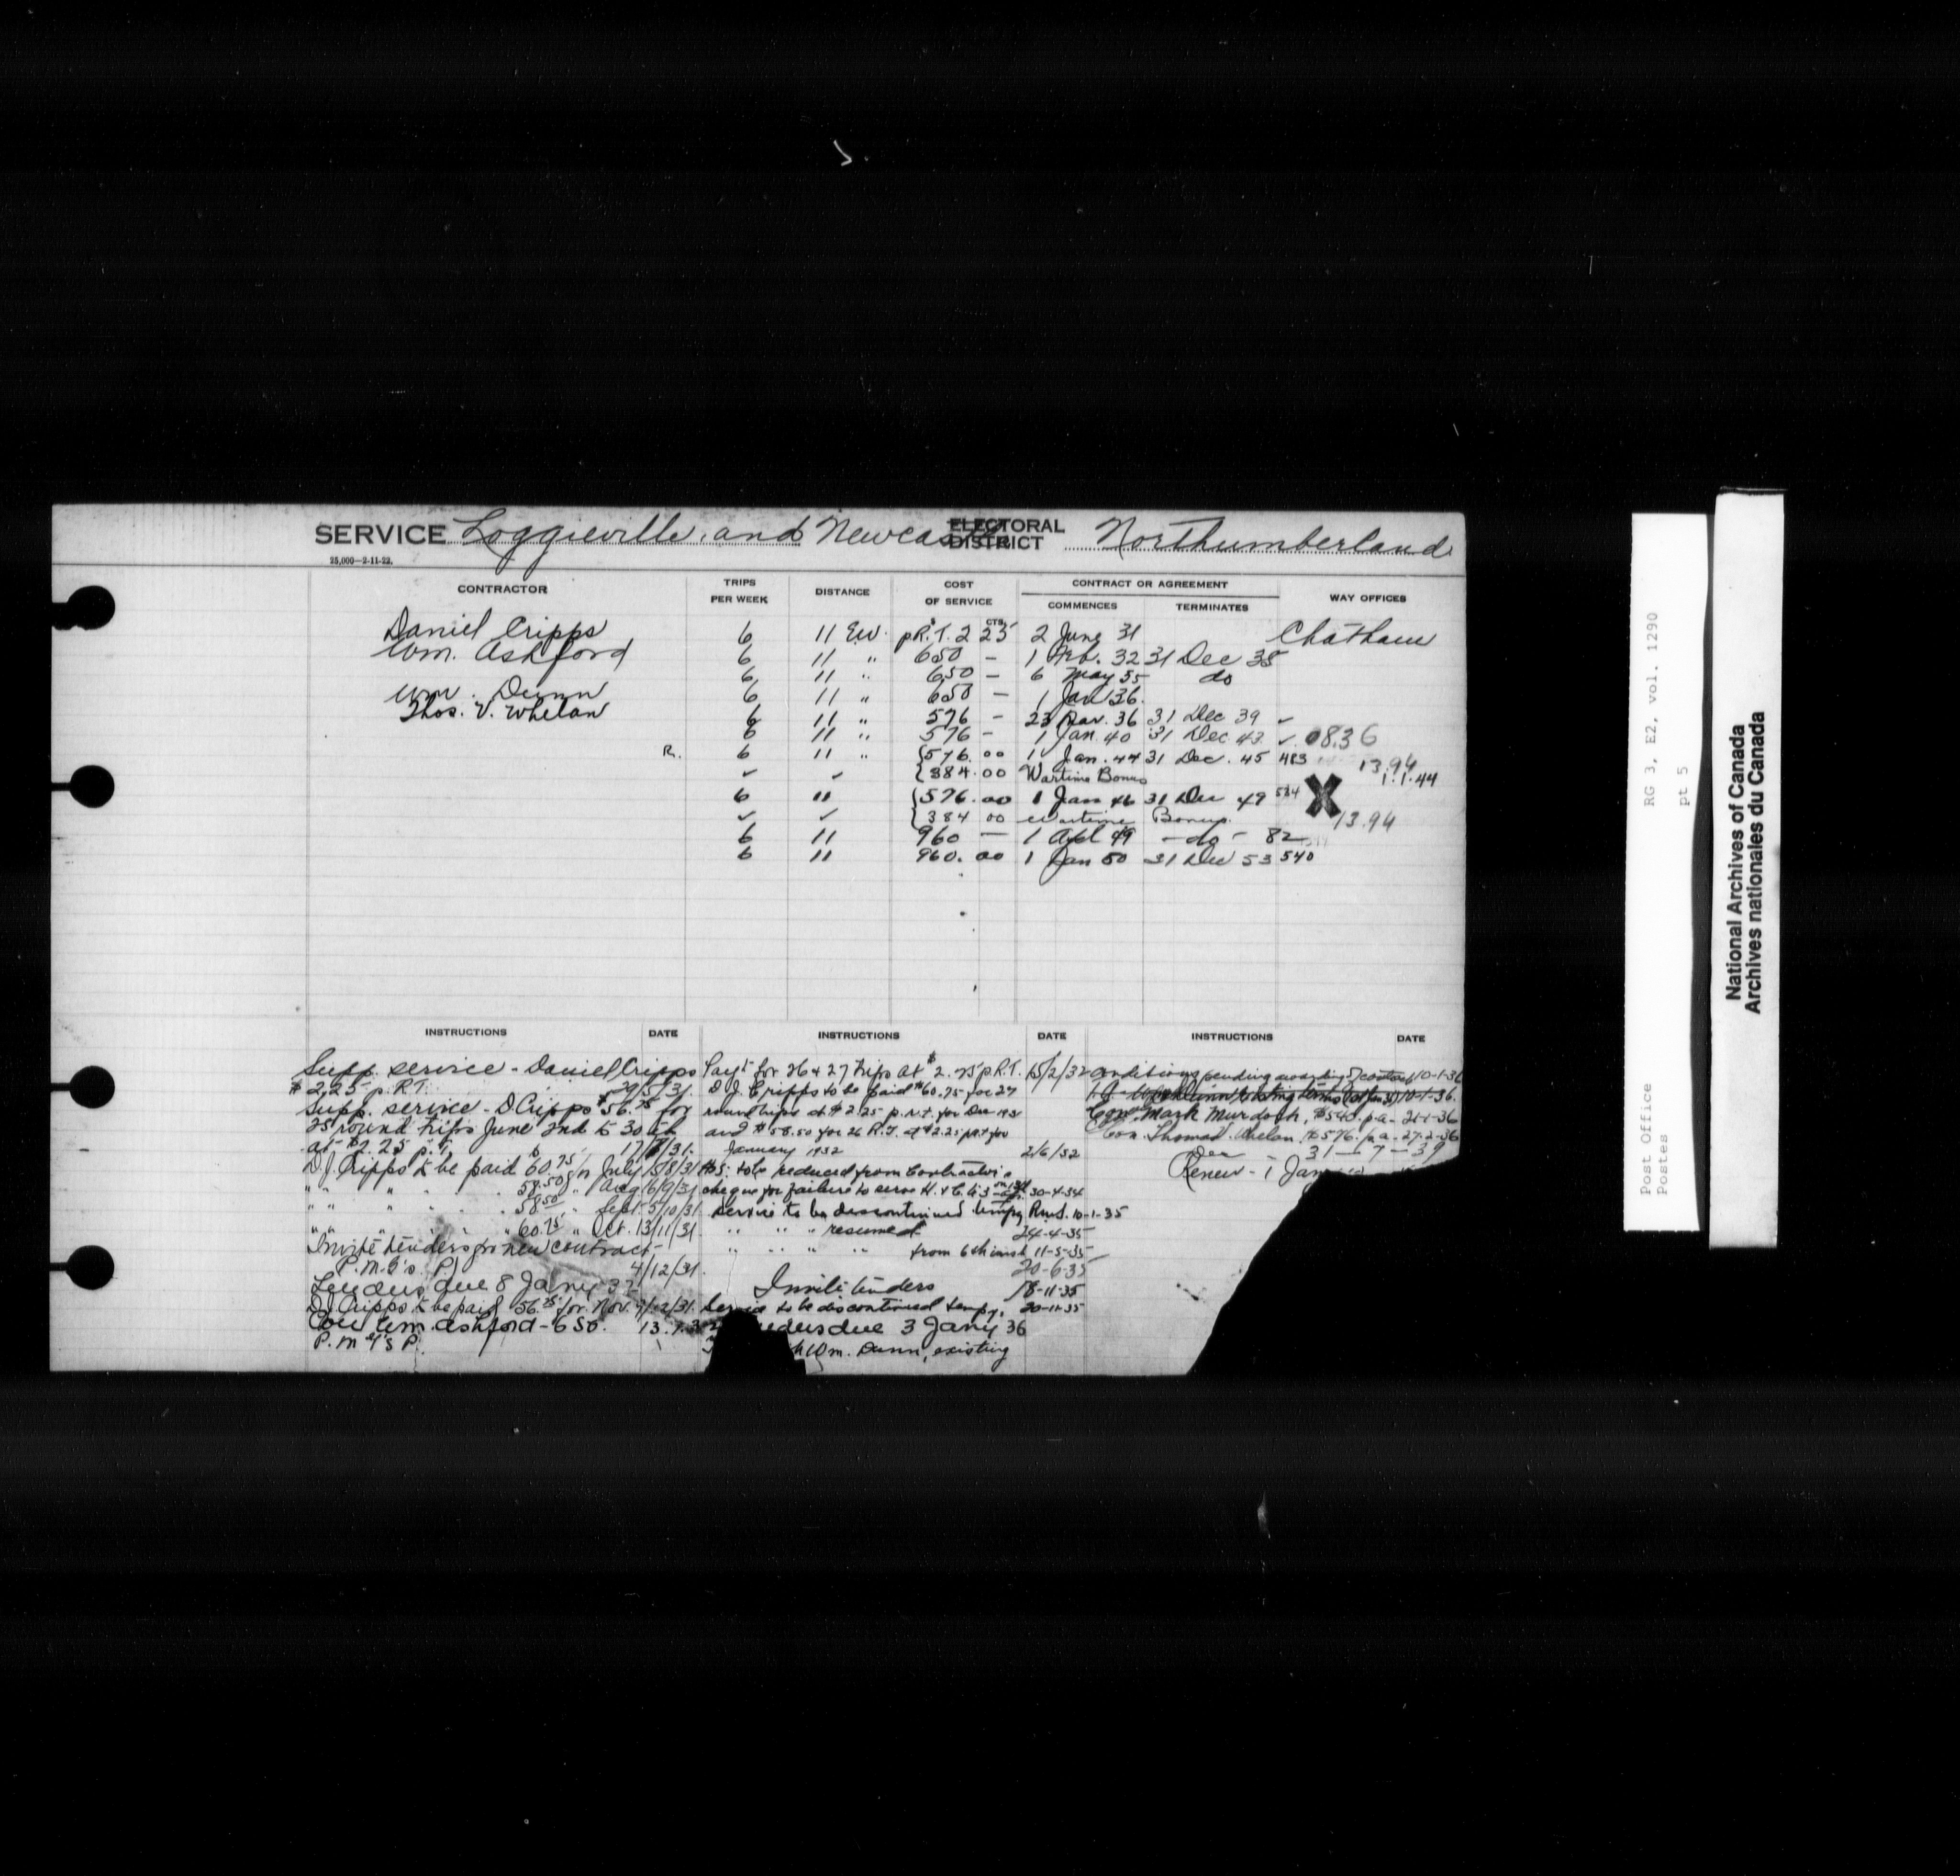 SERVICE Loggieville and Newcastle ELECTORAL DISTRICT Northumberland
25,000—2-11-22.
CONTRACTOR TRIPS PER WEEK DISTANCE COST OF SERVICE CONTRACT OR AGREEMENT COMMENCES TERMINATES WAY OFFICES
Daniel Cripps 6 11 Ew. pR.T. 2 25 2 June 31 Chatham
Wm. Ashford 6 11 " 650 — 1 Feb. 32 31 Dec 35
6 11 " 650 — 6 May 35 do
Wm. Dunn 6 11 " 650 — 1 Jan 36
Thos. V. Whelan 6 11 " 576 — 23 Mar. 36 31 Dec 39 ✓
6 11 " 576 — 1 Jan. 40 31 Dec. 43 ✓ 0836
R. 6 11 " {576.00 1 Jan. 44 31 Dec. 45 483 13.94
✓ ✓ {384.00 Wartime Bonus 1.1.44
6 11 {576.00 1 Jan 46 31 Dec 49 584 X
✓ ✓ {384 00 Wartime Bonus. 13.94
6 11 960 — 1 Apl 49 - do - 82
6 11 960.00 1 Jan 50 31 Dec 53 540
INSTRUCTIONS DATE
Supp. service - Daniel Cripps
$2.25 p. R.T. 29/5/31.
Supp. service - D Cripps $56.25 for
25 round trips June 2nd to 30th
at $2.25 p.t. 17/7/31.
D.J. Cripps to be paid $60.75 for July 5/8/31
" " " " 58.50 " Aug. 6/9/31
" " " " 58.50 " Sept. 5/10/31
" " " " 60.75 " Oct. 13/11/31
Invite tenders for new contract -
P.M.G's. P) 4/12/31.
Tenders due 8 Jany 32
D.J. Cripps to be paid 56.25 for Nov. 9/12/31.
Con Wm. Ashford - 650. 13.1.3
P.M.G's P.
INSTRUCTIONS DATE
Payt for 26 & 27 trips at $2.25 p.R.T. 15/2/32
D.J. Cripps to be paid $60.75 for 27
round trips at $2.25 p.r.t. for Dec 1931
and $58.50 for 26 R.T. at $2.25 p.r.t for
January 1932 2/6/32
to be reduced from Contractor's
cheque for failure to serve 30-4-34
Service to be discontinued tempy 10-1-35
" " " resumed 24-4-35
" " " " from 6th inst 11-5-35
20-6-35
Invite tenders 18-11-35
Service to be discontinued tempy. 20-11-35
due 3 Jany 36
Wm. Dunn, existing
INSTRUCTIONS DATE
conditions pending awarding of contract 10-1-36
10-1-36.
Con. Mark Murdoch, $540. p.a. 21-1-36
Con. Thomas V. Whelan $576. p.a. 27-2-36
31-7-39
Renew - 1 Jan
Post Office RG 3, E2, vol. 1290
Postes pt 5
National Archives of Canada
Archives nationales du Canada